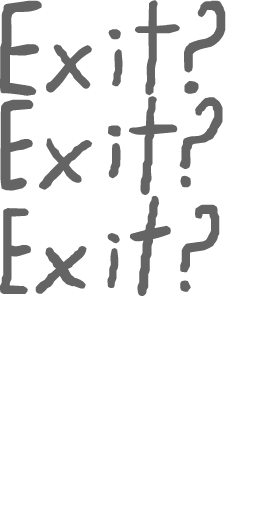 Exit?
Exit?
Exit?